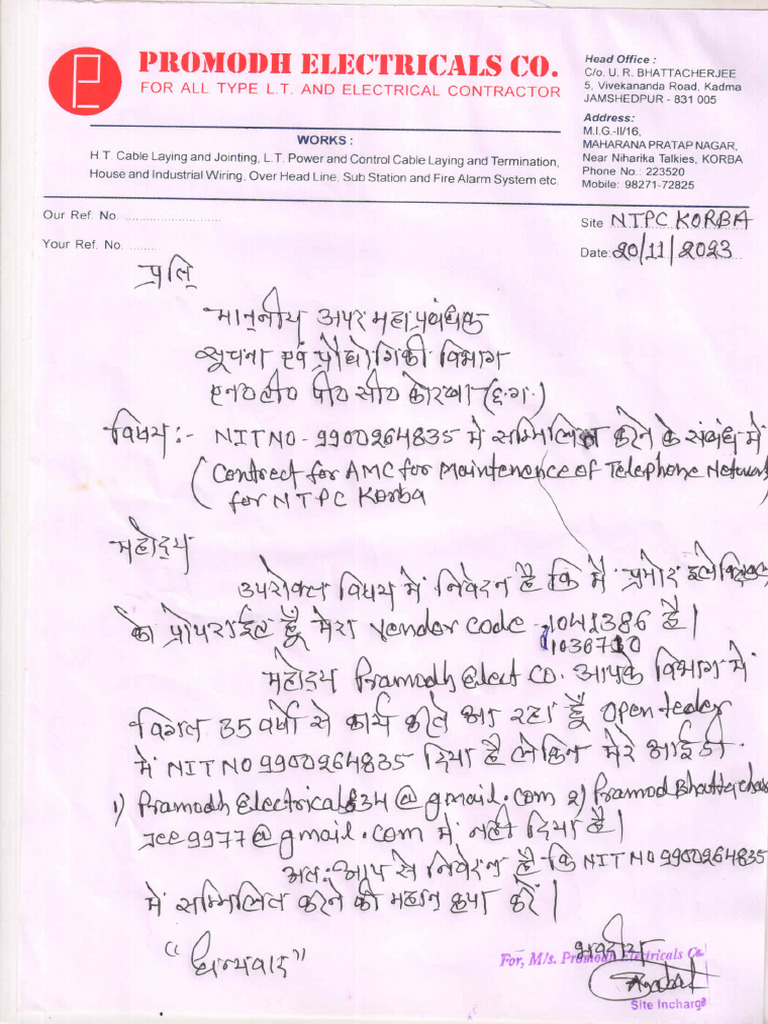 PROMODH ELECTRICALS CO.
FOR ALL TYPE L.T. AND ELECTRICAL CONTRACTOR
WORKS :
H.T. Cable Laying and Jointing, L.T. Power and Control Cable Laying and Termination,
House and Industrial Wiring, Over Head Line, Sub Station and Fire Alarm System etc.
Head Office :
C/o. U. R. BHATTACHERJEE
5, Vivekananda Road, Kadma
JAMSHEDPUR - 831 005
Address:
M.I.G.-II/16,
MAHARANA PRATAP NAGAR,
Near Niharika Talkies, KORBA
Phone No.: 223520
Mobile: 98271-72825
Our Ref. No. ..........................
Your Ref. No. ........
Site NTPC KORBA
Date: 20/11/2023
प्रति
माननीय अपर महाप्रबंधक
सूचना एवं प्रौद्योगिकी विभाग
एन० टी० पी० सी० कोरबा (छ.ग.)
विषय :- NIT NO - 9900264835 में सम्मिलित करने के संबंध में
(Contrect for AMC for Maintenence of Telephone Network
for NTPC Korba
महोदय
उपरोक्त विषय में निवेदन है कि मैं प्रमोद
का प्रोपराईटर हूँ मेरा Vender code - 1041386 है।
महोदय Pramodh Elect CO. आपके विभाग में
विगत 35 वर्षो से कार्य करते आ रहा हूँ open
में NIT NO 9900264835 दिया है लेकिन मेरे आईडी
1) Pramodh Electricals34@gmail.com 2) Pramod Bhattachar
Jee9977@gmail.com में नही दिया है।
अतः आप से निवेदन है कि NIT NO 9900264835
में सम्मिलित करने की महान कृपा करें।
"धन्यवाद"
भवदीय
For, M/s. Promodh Electricals Co.
Site Incharge